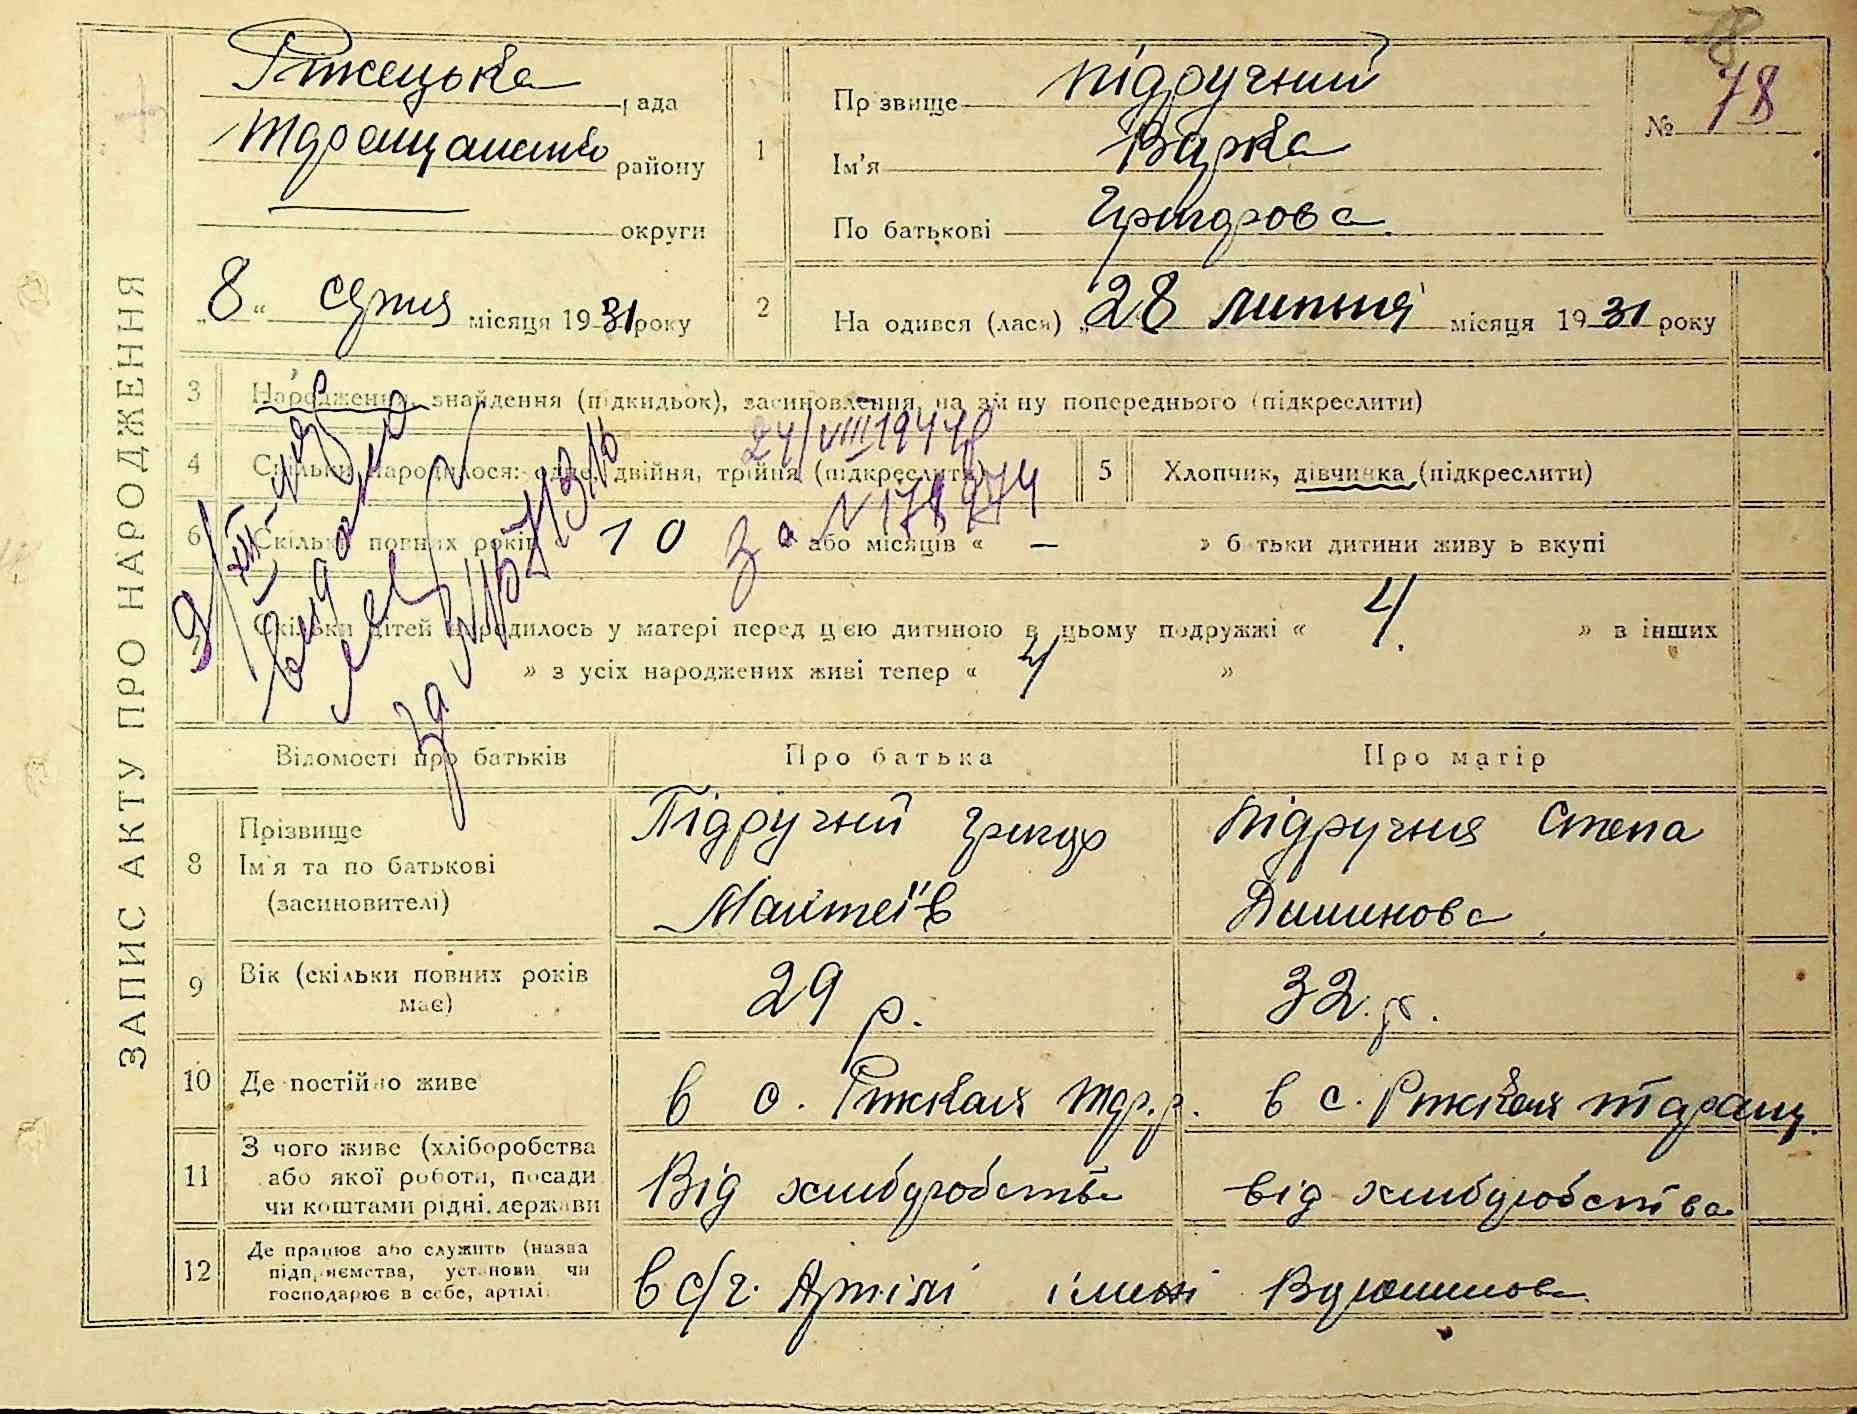 ЗАПИС АКТУ ПРО НАРОДЖЕННЯ
рада
Таращансько району
округи
„8“ серпня місяця 1931 року
№ 78
1
Прізвище Підручний
Ім'я Варка
По батькові Григорова
2
Народився (лася) „28 липня місяця 1931 року
3 Народження, знайдення (підкидьок), засиновлення, на зміну попереднього (підкреслити)
4 Скільки народилося: одне, двійня, трійня (підкреслити)
5 Хлопчик, дівчинка (підкреслити)
24/VIII 1944р
за N 178974
6 Скільки повних років « 10 » або місяців « — » батьки дитини живуть вкупі
Скільки дітей народилось у матері перед цією дитиною в цьому подружжі « 4. » в інших
» з усіх народжених живі тепер « 4 »
Відомості про батьків
Про батька
Про матір
8 Прізвище
Ім'я та по батькові
(засиновителі)
Підручний Григор
Мактеїв
Підручня Степа
9 Вік (скільки повних років має)
29 р.
32.р.
10 Де постійно живе
в с.
в с.
11 З чого живе (хліборобства
або якої роботи, посади
чи коштами рідні, держави
Від хліборобства
від хліборобства
12 Де працює або служить (назва
підприємства, установи чи
господарює в себе, артілі
в с/г. Артілі імені